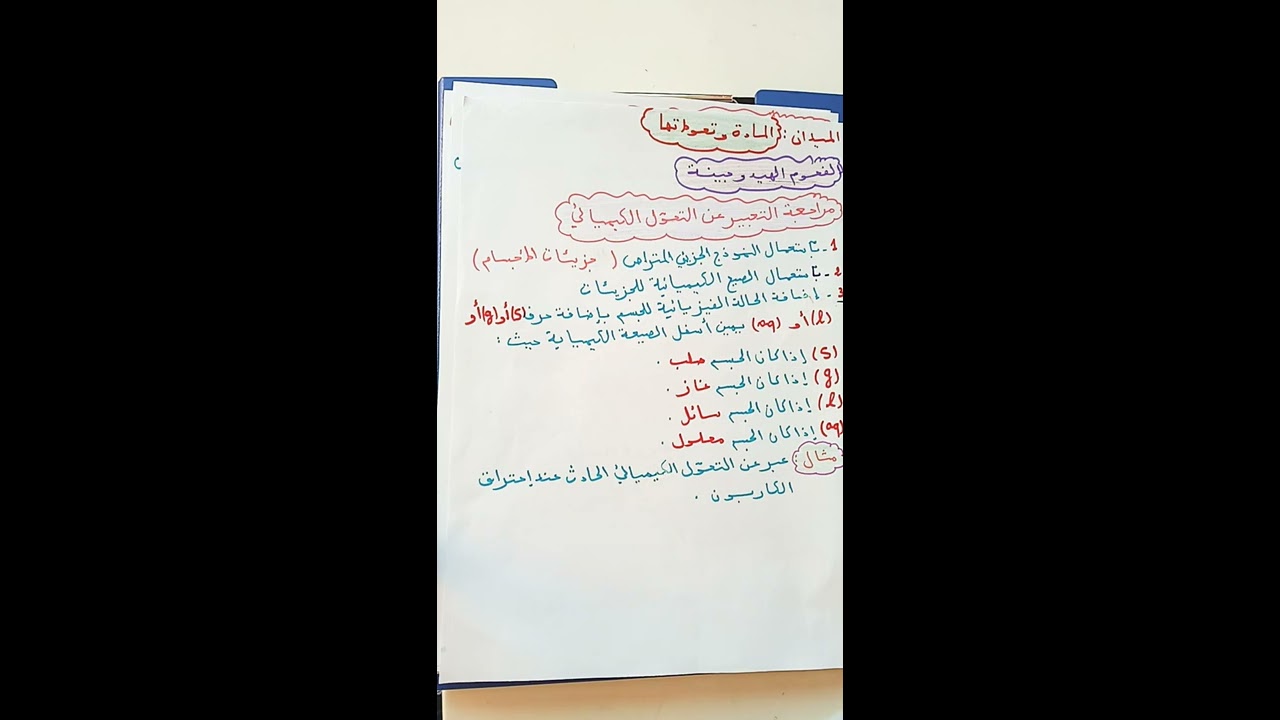 الميدان: المادة وتحولاتها
الفحوم الهيدروجينية
مراجعة التعبير عن التحوّل الكيميائي
1 - بإستعمال النموذج الجزيئي المتراص (جزيئات الأجسام)
2 - بإستعمال الصيغ الكيميائية للجزيئات
3 - إضافة الحالة الفيزيائية للجسم بإضافة حرف (s) أو (g) أو
(l) أو (aq) يمين أسفل الصيغة الكيميائية حيث:
(s) إذا كان الجسم صلب.
(g) إذا كان الجسم غاز.
(l) إذا كان الجسم سائل.
(aq) إذا كان الجسم محلول.
مثال: عبر عن التحوّل الكيميائي الحادث عند إحتراق
الكاربون.